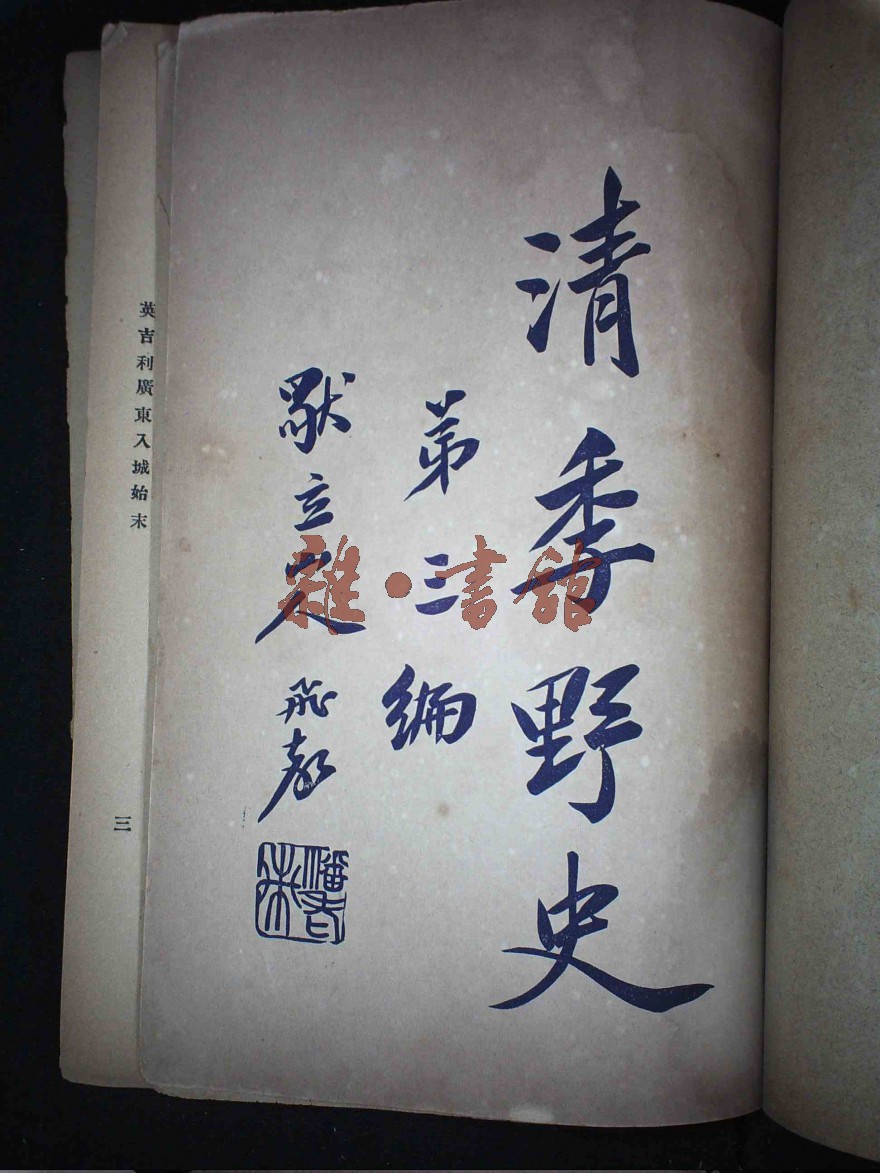 清季野史
第三編
獸立定 飛敖
雜·書館
英吉利廣東入城始末
三